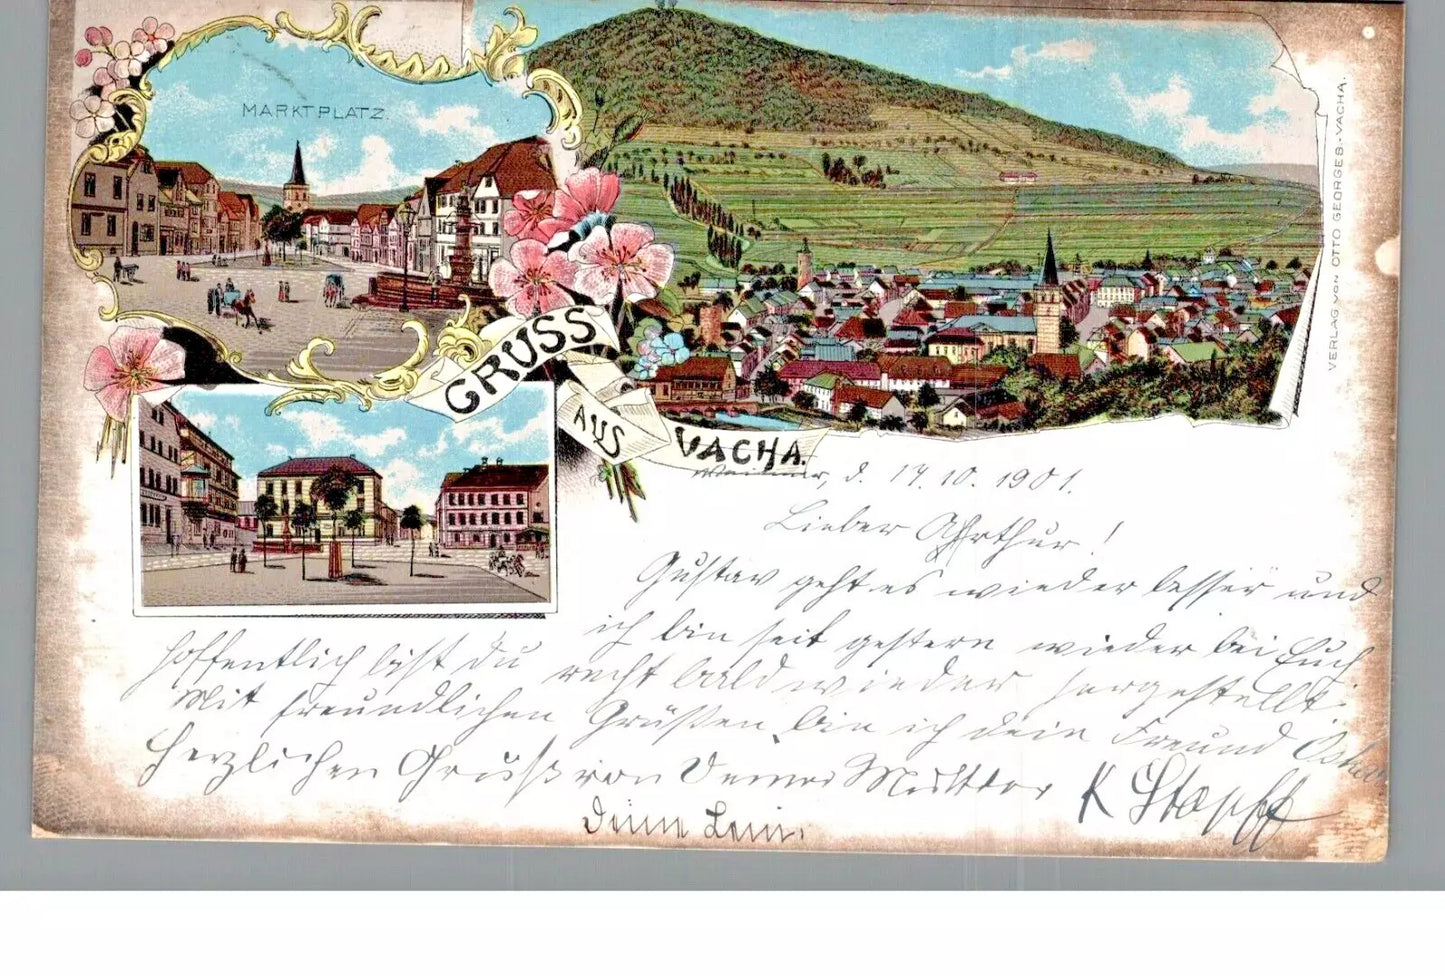 MARKTPLATZ.
VERLAG VON OTTO GEORGES.-VACHA.
GRUSS
AUS
VACHA.
d. 17. 10. 1901.
Lieber Arthur!
Gustav geht es wieder besser und
ich bin seit gestern wieder bei Euch
hoffentlich bist du recht bald wieder hergestellt.
Mit freundlichen Grüßen bin ich dein Freund
Herzlichen Gruß von Deiner Mutter K Stapff
Deine